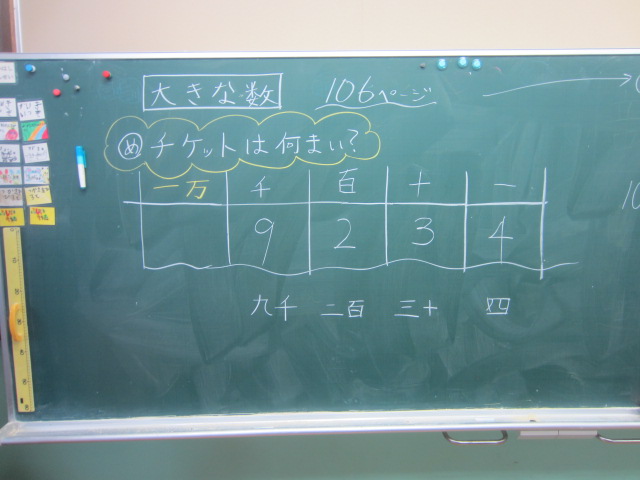 大きな数 106ページ
め チケットは何まい?
一万 千 百 十 一
9 2 3 4
九千 二百 三十 四
10